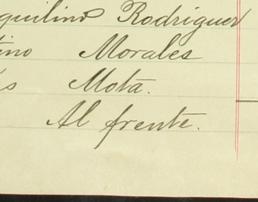 quilino Rodriguez
tino Morales
s Mota.
Al frente.